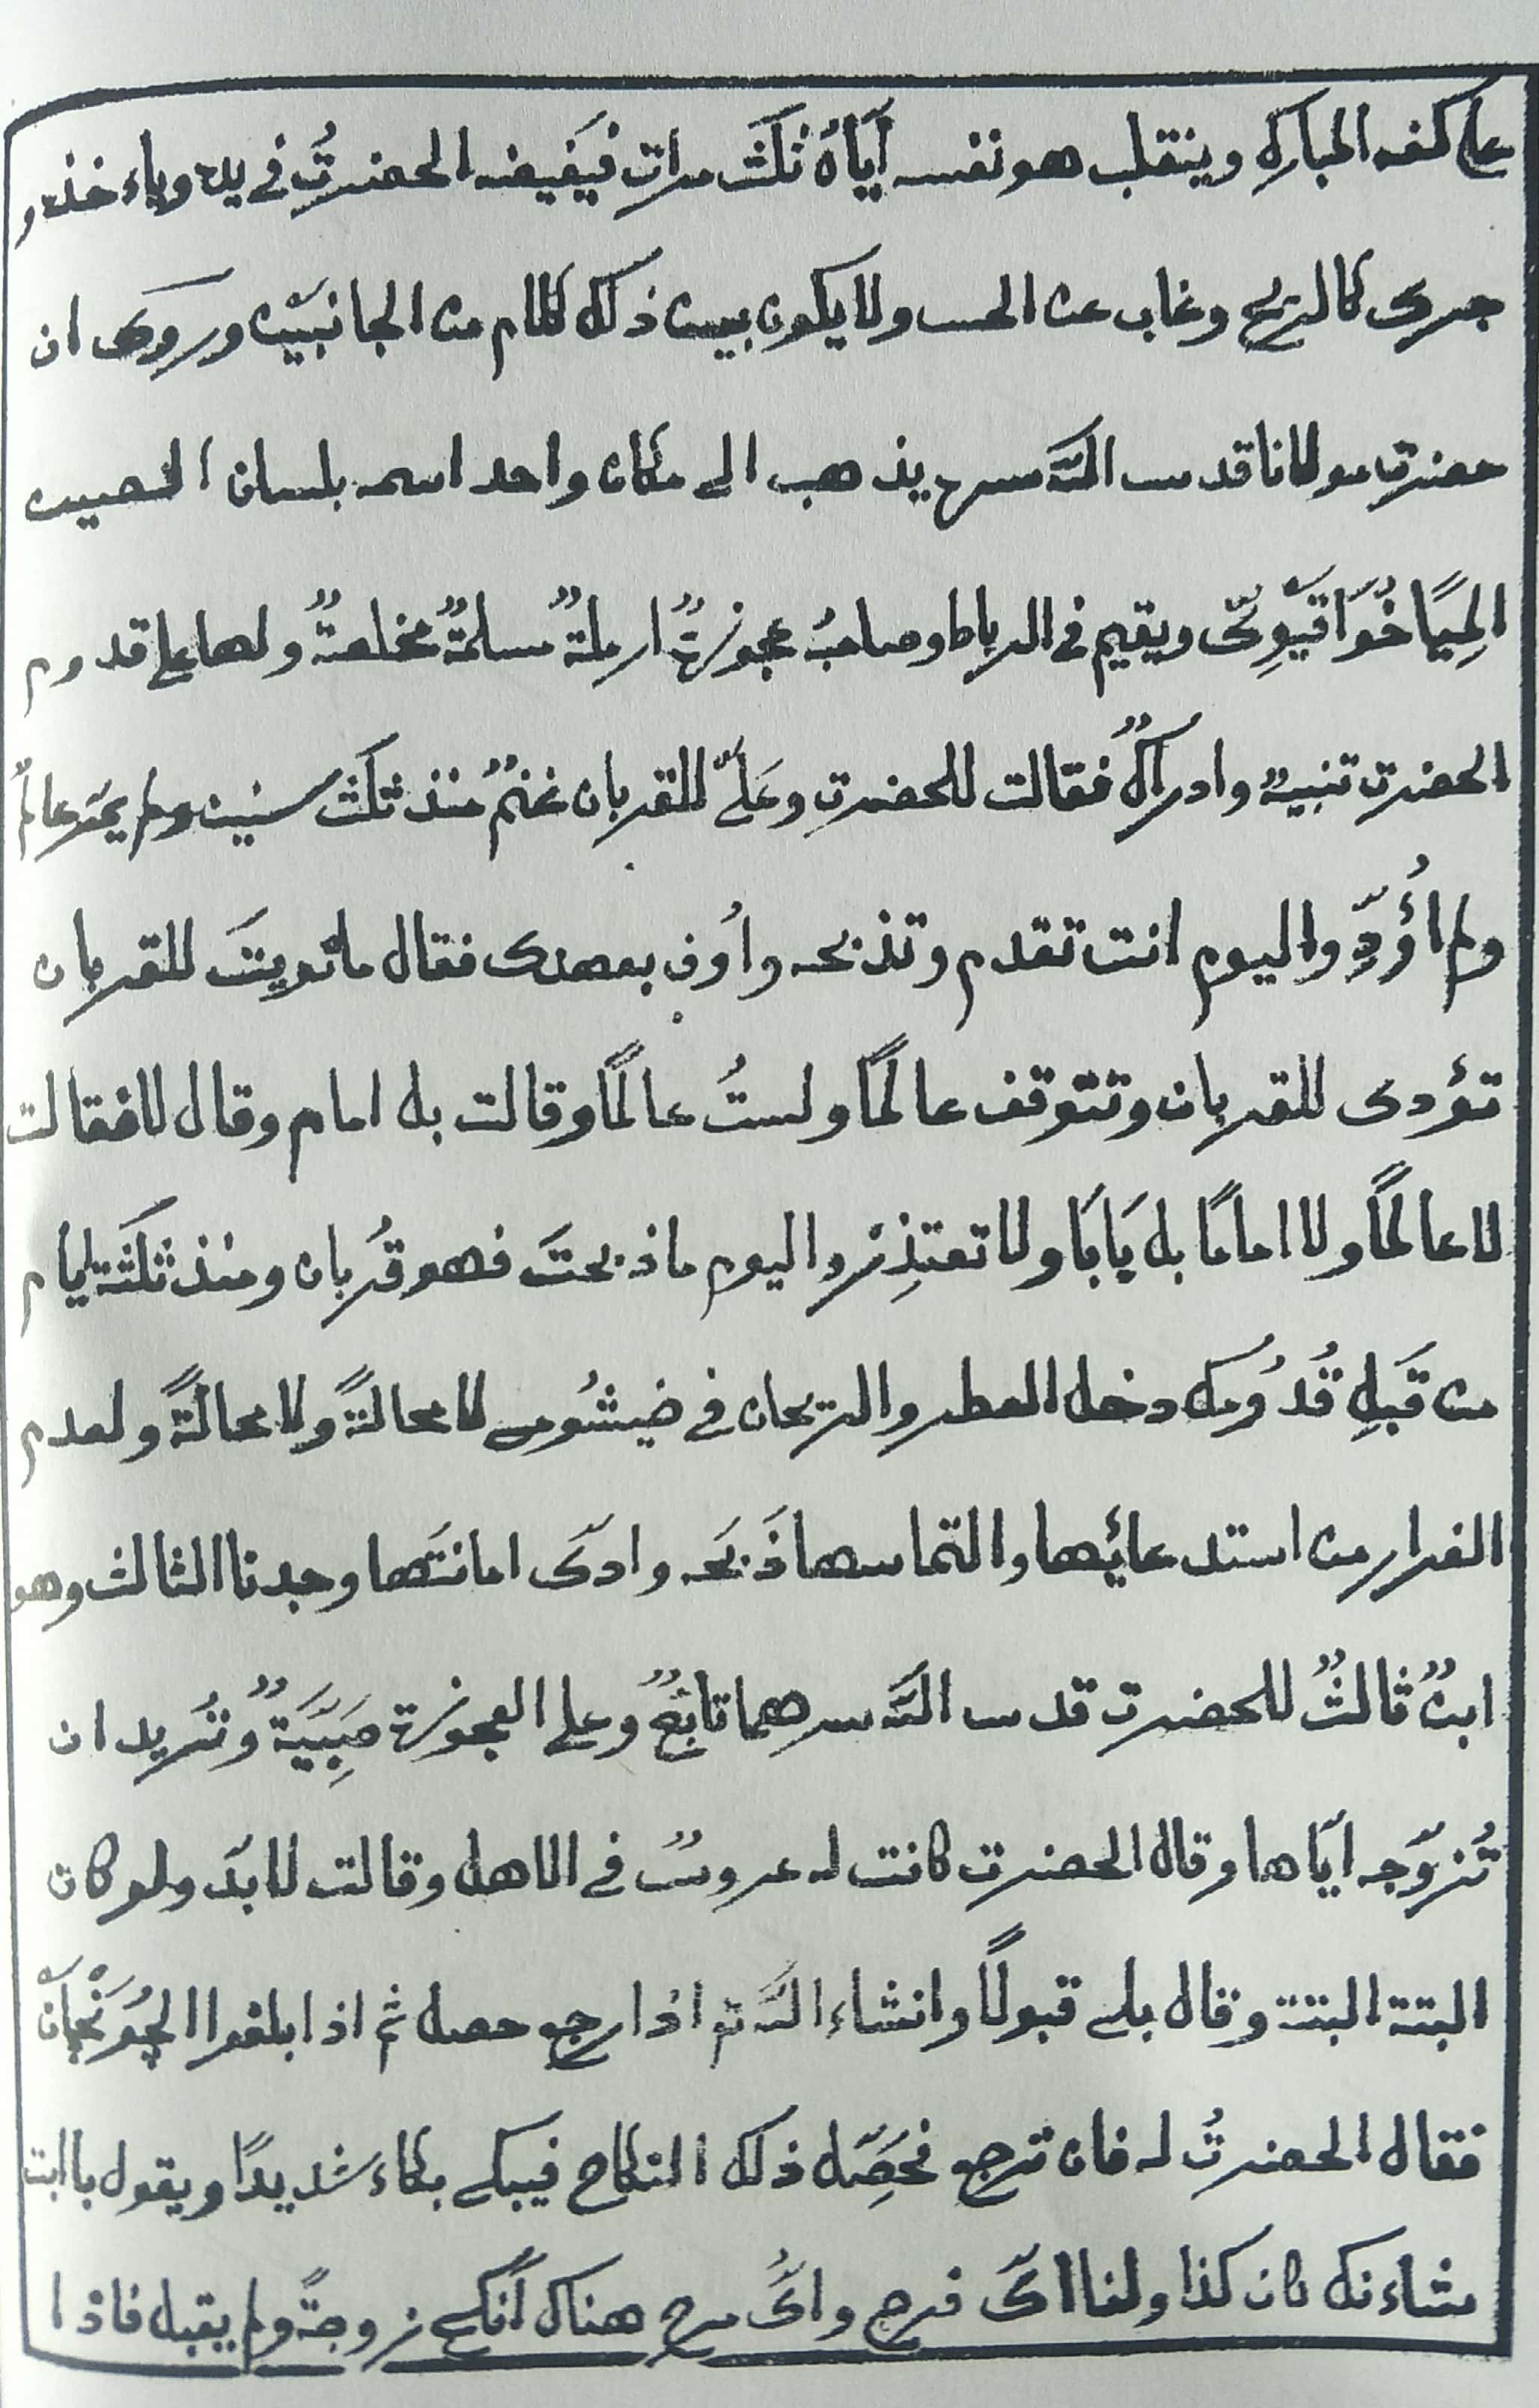 على كفه المبارك وينقلب هو نفسه أَيَّاهُ ثلَثَ مرات فيَفيضه الحضرتُ في يده وياءخذه و
جرى كالريح وغاب عن الحس ولا يكون بين ذلك كلام من الجانبَيْن وروى ان
حضرت مولانا قدس اللّه سره يذهب الى مكان واحد اسمه بلسان الخصين
ويقيم في الرباط وصاحبُه عجوزةٌ ارملةٌ مسلمةٌ مخلصةٌ ولها على قدوم
الحضرت تنبيهٌ وادراكٌ فقالت للحضرتِ وعَلَىَّ للقربان غنمٌ منذ ثلَثَ سنين ولم يمَر عالمٌ
ولم أُؤَدِّ واليوم انت تقدم وتذبحه وأوفِ بعهدى فقال ما نويتَ للقربان
تؤدى للقربان وتتوقف عالمًا ولستُ عالمًا وقالت بل امام وقال لا فقالت
لا عالمًا ولا امامًا بل يَابَا ولا تعتذِرْ واليوم ما ذبحتَ فهو قُربان ومنذ ثلَثَة ايام
من قَبلِ قُدُومِك دخل العطر والريحان في خيشُومى لا محالةً ولا محالَةً ولعدم
الفرار من استدعائِها والتماسها ذَبَحَه وادّى امانتَها وجدنا الثالث وهو
ابنٌ ثالثٌ للحضرت قدس اللّه سرهما تابعٌ وعلى العجوزة صَبِيَّةٌ وتُريد ان
تُزوّجه ايّاها وقال الحضرت كانت له عروسٌ في الاهل وقالت لا بدّ ولو كان
البتة البتة وقال بلى قبولًا وانشاء اللّه تع اذا رجع حصل ثم اذا بلغوا
فقال الحضرتُ له فان ترجع نحَصِّل ذلك النكاح فيبكى بكاء شديدًا ويقول يا ابت
شاءنك كان كذا ولنا اىّ فرح واىُّ مرح هناك أنكح زوجةً ولم يقبل فاذا